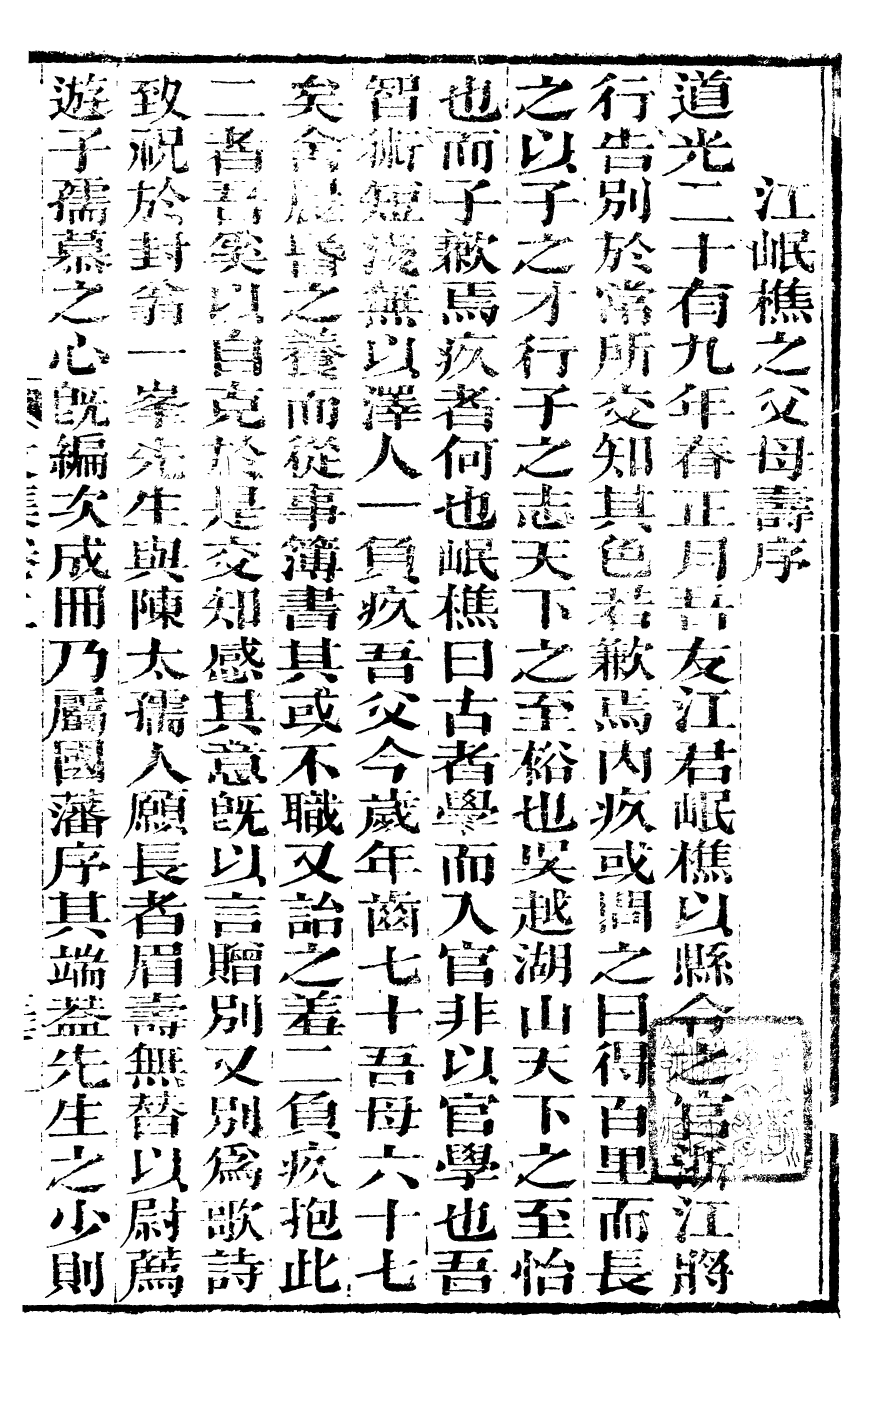 江岷樵之父母壽序
道光二十有九年春正月吾友江君岷樵以縣令之官浙江將
行告別於常所交知其色若歉焉內疚或謂之曰得百里而長
之以子之才行子之志天下之至裕也吳越湖山天下之至怡
也而子歉焉疚者何也岷樵曰古者學而入官非以官學也吾
智術短淺無以澤人一負疚吾父今歲年齒七十吾母六十七
矣舍晨昏之養而從事簿書其或不職又詒之羞二負疚抱此
二者吾奚以自克於是交知感其意旣以言贈別又別爲歌詩
致祝於封翁一峯先生與陳太孺人願長者眉壽無替以尉薦
遊子孺慕之心旣編次成冊乃屬國藩序其端葢先生之少則